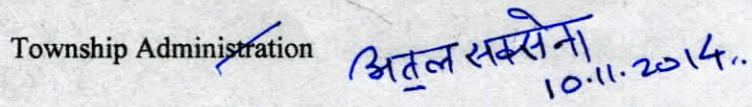 Township Administration अतुल सक्सेना
10.11.2014..